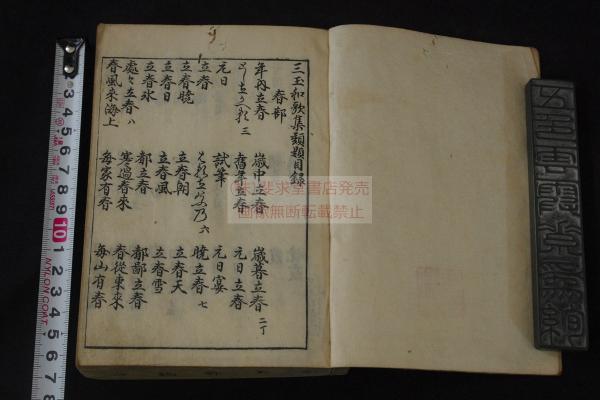 三玉和歌集類題目録
春部
年内立春 歳中立春 歳暮立春 二丁
三 舊年立春 元日立春
元日 試筆 元日宴
立春 六 暁立春 七
立春暁 立春朝 立春天
立春日 立春風 立春雪
立春氷 都立春 都鄙立春
處々立春 八 寒過春来 春従東来
春風来海上 毎家有春 毎山有春
(株)斐求堂書店発売
画像無断転載禁止
3 4 5 6 7 8 9 10 1 2 3 4 5 6 7 8
NYLON COAT